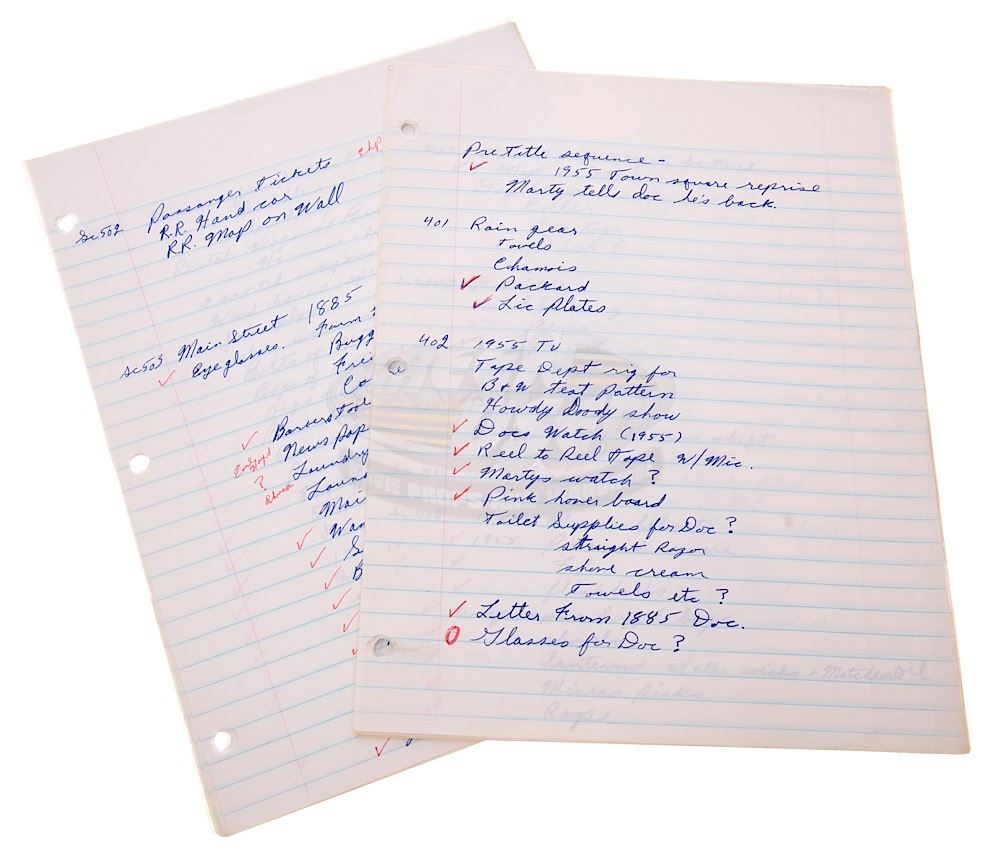 Sc502 Passanger tickets
R.R. Hand car
R.R. Map on Wall
Sc503 Main Street 1885
Eyeglasses. Farm
Bugg
Frei
Co
Barbers tool
News pap
?
Laundry
Laun
Mai
Wan
S
B
Pre Title sequence -
1955 Town square reprise
Marty tells doc he's back.
401 Rain gear
Towels
Chamois
Packard
Lic Plates
402 1955 TV
Tape Dept rig for
B+W test pattern
Howdy Doody show
Docs Watch (1955)
Reel to Reel tape w/Mic.
Martys watch ?
Pink hover board
Toilet Supplies for Doc ?
straight Razor
shave cream
Towels etc ?
Letter From 1885 Doc.
O Glasses for Doc ?
lanterns
Miners picks
Rope